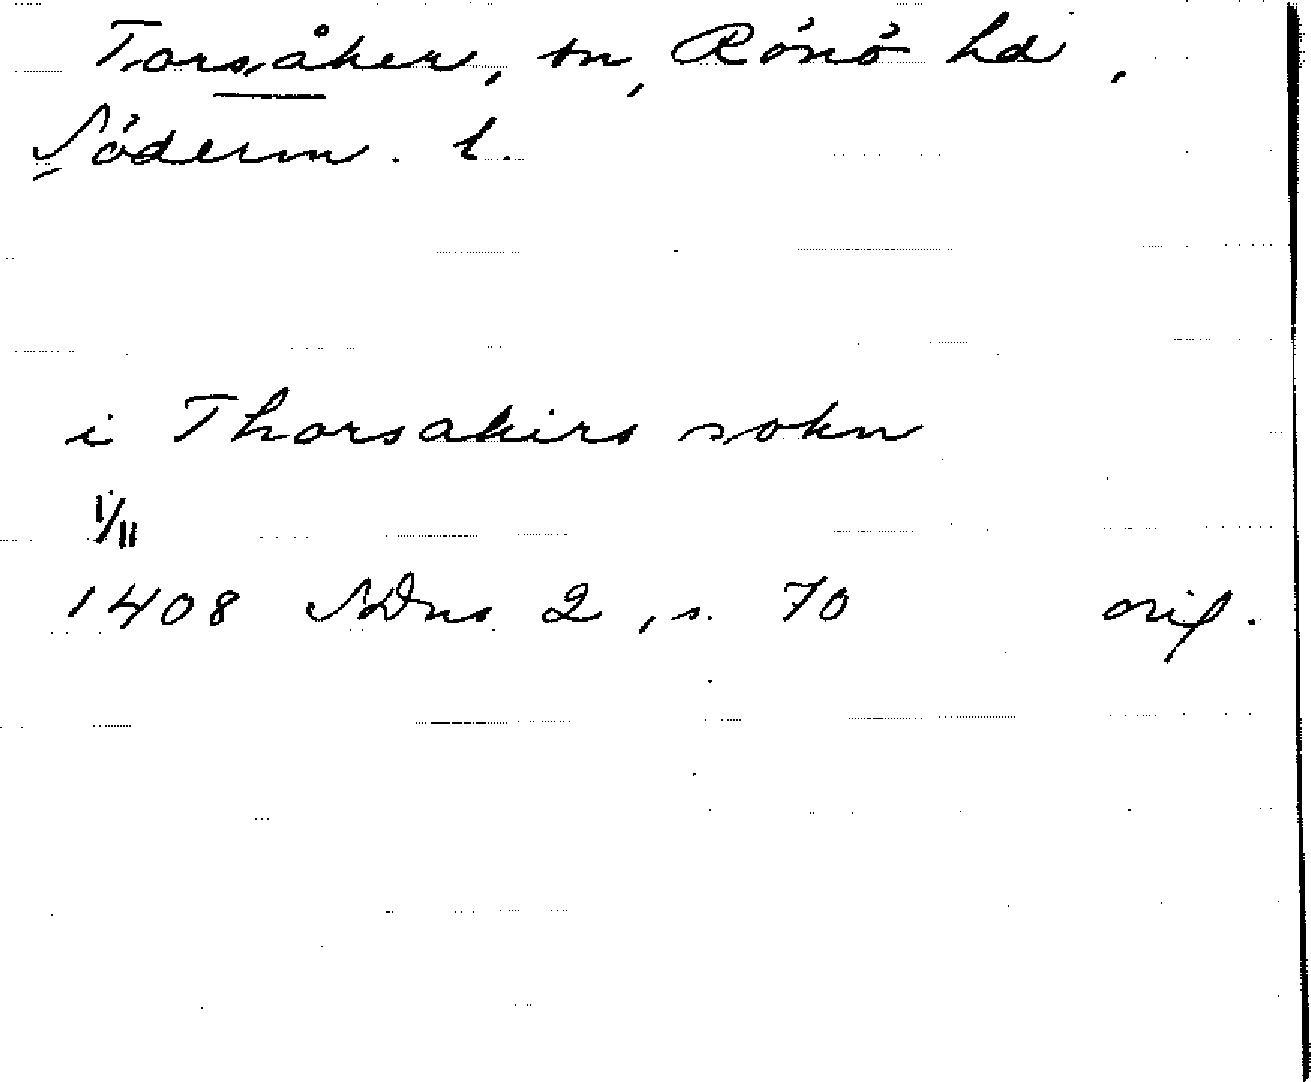 Torsåker, sn, Rönö hd,
Söderm. l.
i Thorsakirs sokn
1/11
1408 SDns 2, s. 70 orig.